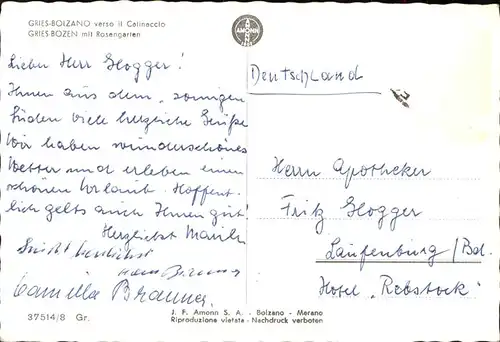 GRIES-BOLZANO verso il Catinaccio
GRIES-BOZEN mit Rosengarten
AMONN
Lieber Herr Glogger!
Ihnen aus dem „sonnigen
Süden viele herzliche Grüße
Wir haben wunderschönes
Wetter und erleben einen
schönen Urlaub. Hoffent-
lich gehts auch Ihnen gut!
Herzlichst
Camilla Brauner
37514/8 Gr.
Deutschland
Herrn Apotheker
Fritz Glogger
Laufenburg/Bd.
Hotel „Rebstock"
J. F. Amonn S. A. - Bolzano - Merano
Riproduzione vietata - Nachdruck verboten